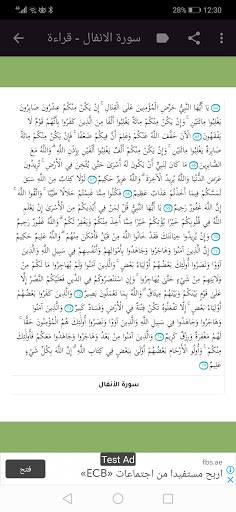 79% 12:30
سورة الانفال - قراءة
يَا أَيُّهَا النَّبِيُّ حَرِّضِ الْمُؤْمِنِينَ عَلَى الْقِتَالِ ۚ إِنْ يَكُنْ مِنْكُمْ عِشْرُونَ صَابِرُونَ
يَغْلِبُوا مِائَتَيْنِ ۚ وَإِنْ يَكُنْ مِنْكُمْ مِائَةٌ يَغْلِبُوا أَلْفًا مِنَ الَّذِينَ كَفَرُوا بِأَنَّهُمْ قَوْمٌ لَا
يَفْقَهُونَ الْآنَ خَفَّفَ اللَّهُ عَنْكُمْ وَعَلِمَ أَنَّ فِيكُمْ ضَعْفًا ۚ فَإِنْ يَكُنْ مِنْكُمْ مِائَةٌ
صَابِرَةٌ يَغْلِبُوا مِائَتَيْنِ ۚ وَإِنْ يَكُنْ مِنْكُمْ أَلْفٌ يَغْلِبُوا أَلْفَيْنِ بِإِذْنِ اللَّهِ ۗ وَاللَّهُ مَعَ
الصَّابِرِينَ مَا كَانَ لِنَبِيٍّ أَنْ يَكُونَ لَهُ أَسْرَى حَتَّى يُثْخِنَ فِي الْأَرْضِ ۚ تُرِيدُونَ
عَرَضَ الدُّنْيَا وَاللَّهُ يُرِيدُ الْآخِرَةَ ۗ وَاللَّهُ عَزِيزٌ حَكِيمٌ لَوْلَا كِتَابٌ مِنَ اللَّهِ سَبَقَ
لَمَسَّكُمْ فِيمَا أَخَذْتُمْ عَذَابٌ عَظِيمٌ فَكُلُوا مِمَّا غَنِمْتُمْ حَلَالًا طَيِّبًا ۚ وَاتَّقُوا اللَّهَ ۚ
إِنَّ اللَّهَ غَفُورٌ رَحِيمٌ يَا أَيُّهَا النَّبِيُّ قُلْ لِمَنْ فِي أَيْدِيكُمْ مِنَ الْأَسْرَى إِنْ يَعْلَمِ
اللَّهُ فِي قُلُوبِكُمْ خَيْرًا يُؤْتِكُمْ خَيْرًا مِمَّا أُخِذَ مِنْكُمْ وَيَغْفِرْ لَكُمْ ۗ وَاللَّهُ غَفُورٌ رَحِيمٌ
وَإِنْ يُرِيدُوا خِيَانَتَكَ فَقَدْ خَانُوا اللَّهَ مِنْ قَبْلُ فَأَمْكَنَ مِنْهُمْ ۗ وَاللَّهُ عَلِيمٌ حَكِيمٌ
إِنَّ الَّذِينَ آمَنُوا وَهَاجَرُوا وَجَاهَدُوا بِأَمْوَالِهِمْ وَأَنْفُسِهِمْ فِي سَبِيلِ اللَّهِ وَالَّذِينَ
آوَوْا وَنَصَرُوا أُولَئِكَ بَعْضُهُمْ أَوْلِيَاءُ بَعْضٍ ۚ وَالَّذِينَ آمَنُوا وَلَمْ يُهَاجِرُوا مَا لَكُمْ مِنْ
وَلَايَتِهِمْ مِنْ شَيْءٍ حَتَّى يُهَاجِرُوا ۚ وَإِنِ اسْتَنْصَرُوكُمْ فِي الدِّينِ فَعَلَيْكُمُ النَّصْرُ إِلَّا
عَلَى قَوْمٍ بَيْنَكُمْ وَبَيْنَهُمْ مِيثَاقٌ ۗ وَاللَّهُ بِمَا تَعْمَلُونَ بَصِيرٌ وَالَّذِينَ كَفَرُوا بَعْضُهُمْ
أَوْلِيَاءُ بَعْضٍ ۚ إِلَّا تَفْعَلُوهُ تَكُنْ فِتْنَةٌ فِي الْأَرْضِ وَفَسَادٌ كَبِيرٌ وَالَّذِينَ آمَنُوا
وَهَاجَرُوا وَجَاهَدُوا فِي سَبِيلِ اللَّهِ وَالَّذِينَ آوَوْا وَنَصَرُوا أُولَئِكَ هُمُ الْمُؤْمِنُونَ حَقًّا ۚ
لَهُمْ مَغْفِرَةٌ وَرِزْقٌ كَرِيمٌ وَالَّذِينَ آمَنُوا مِنْ بَعْدُ وَهَاجَرُوا وَجَاهَدُوا مَعَكُمْ فَأُولَئِكَ
مِنْكُمْ ۚ وَأُولُو الْأَرْحَامِ بَعْضُهُمْ أَوْلَى بِبَعْضٍ فِي كِتَابِ اللَّهِ ۗ إِنَّ اللَّهَ بِكُلِّ شَيْءٍ
عَلِيمٌ
سورة الأنفال
Test Ad
fbs.ae
اربح مستفيدا من اجتماعات «ECB»
فتح